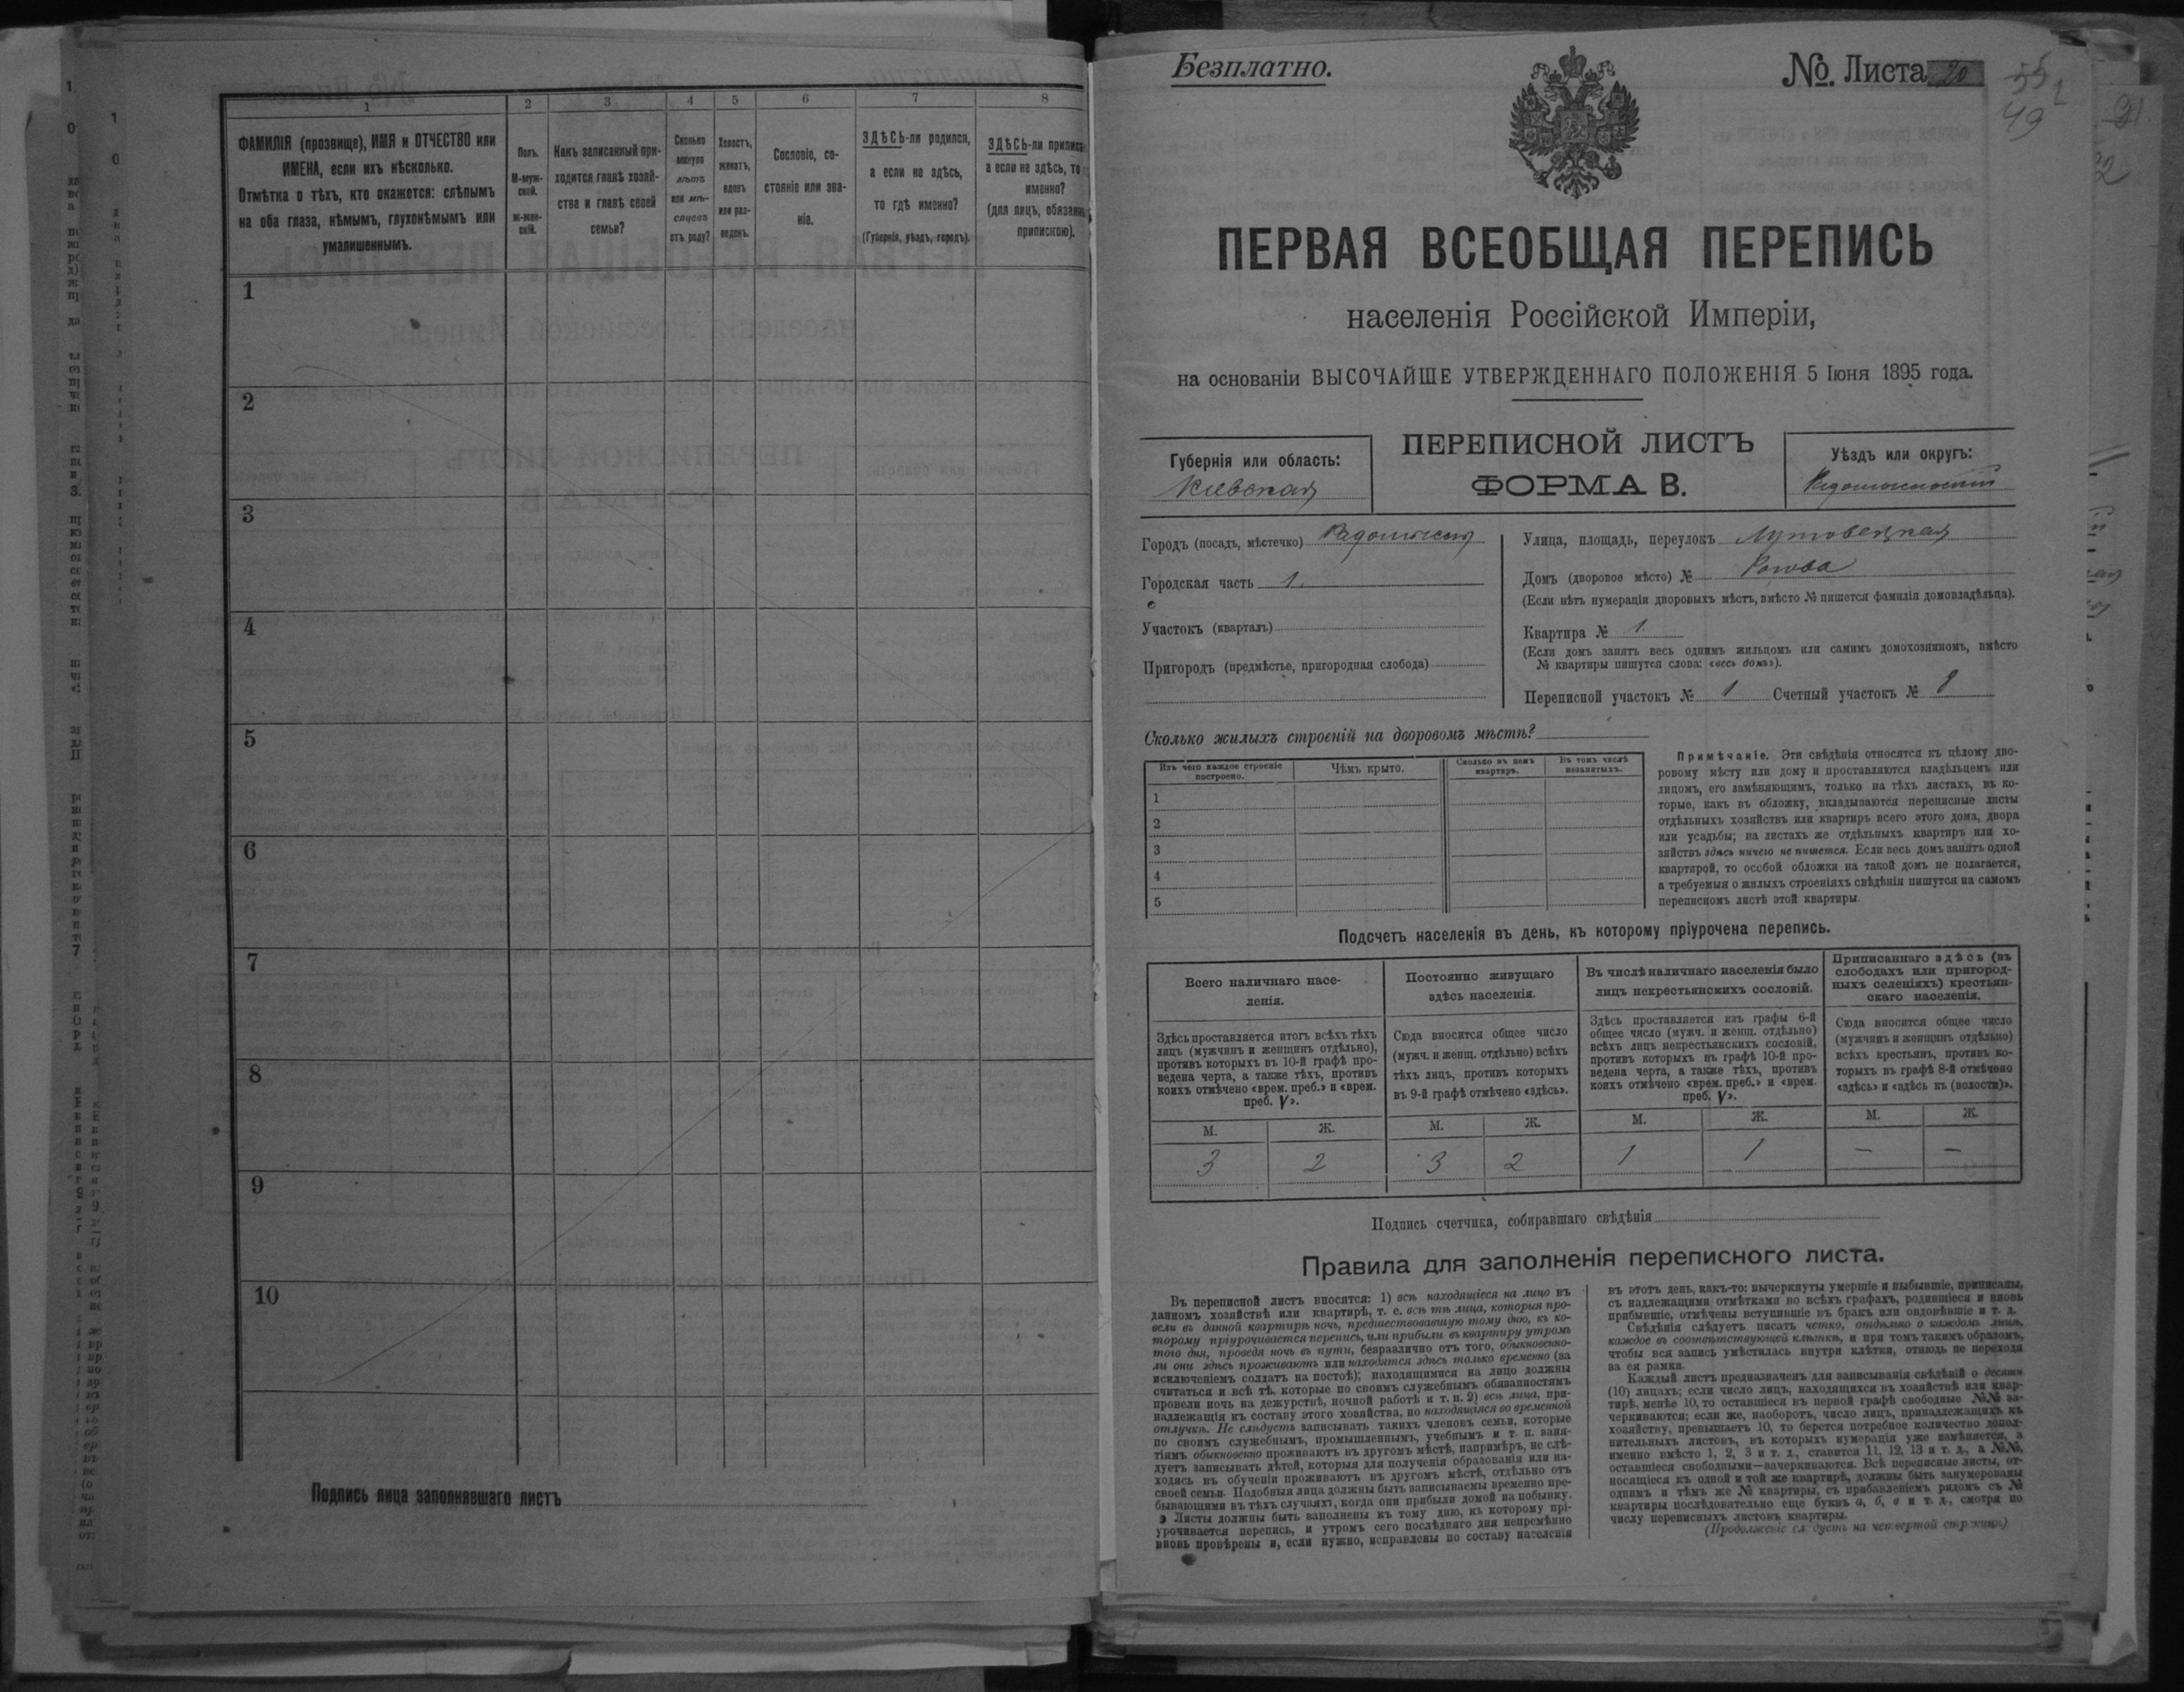 1
2
3
4
5
6
7
8
ФАМИЛІЯ (прозвище), ИМЯ и ОТЧЕСТВО или
ИМЕНА, если ихъ нѣсколько.
Отмѣтка о тѣхъ, кто окажется: слѣпымъ
на оба глаза, нѣмымъ, глухонѣмымъ или
умалишеннымъ.
Полъ.
М-муж-
ской.
Ж-жен-
скій.
Какъ записанный при-
ходится главѣ хозяй-
ства и главѣ своей
семьи?
Сколько
минуло
лѣтъ
или мѣ-
сяцевъ
отъ роду?
Холостъ,
женатъ,
вдовъ
или раз-
веденъ.
Сословіе, со-
стояніе или зва-
ніе.
ЗДѢСЬ-ли родился,
а если не здѣсь,
то гдѣ именно?
(Губернія, уѣздъ, городъ).
ЗДѢСЬ-ли
а если не здѣсь, то
именно?
(для лицъ,
припискою).
1
2
3
4
5
6
7
8
9
10
Подпись лица заполнявшаго листъ
Безплатно.
№. Листа 20
49
ПЕРВАЯ ВСЕОБЩАЯ ПЕРЕПИСЬ
населенія Россійской Имперіи,
на основаніи ВЫСОЧАЙШЕ УТВЕРЖДЕННАГО ПОЛОЖЕНІЯ 5 Іюня 1895 года.
Губернія или область:
Кіевская
ПЕРЕПИСНОЙ ЛИСТЪ
ФОРМА В.
Уѣздъ или округъ:
Городъ (посадъ, мѣстечко)
Городская часть 1.
Участокъ (кварталъ)
Пригородъ (предмѣстье, пригородная слобода)
Улица, площадь, переулокъ
Домъ (дворовое мѣсто) №
(Если нѣтъ нумераціи дворовыхъ мѣстъ, вмѣсто № пишется фамилія домовладѣльца).
Квартира № 1.
(Если домъ занятъ весь однимъ жильцомъ или самимъ домохозяиномъ, вмѣсто
№ квартиры пишутся слова: «весь домъ»).
Переписной участокъ № 1 Счетный участокъ №
Сколько жилыхъ строеній на дворовомъ мѣстѣ?
Изъ чего каждое строеніе
построено.
Чѣмъ крыто.
Сколько въ немъ
квартиръ.
Въ томъ числѣ
незанятыхъ.
1
2
3
4
5
Примѣчаніе. Эти свѣдѣнія относятся къ цѣлому дво-
ровому мѣсту или дому и проставляются владѣльцемъ или
лицомъ, его замѣняющимъ, только на тѣхъ листахъ, въ ко-
торые, какъ въ обложку, вкладываются переписные листы
отдѣльныхъ хозяйствъ или квартиръ всего этого дома, двора
или усадьбы; на листахъ же отдѣльныхъ квартиръ или хо-
зяйствъ здѣсь ничего не пишется. Если весь домъ занятъ одной
квартирой, то особой обложки на такой домъ не полагается,
а требуемыя о жилыхъ строеніяхъ свѣдѣнія пишутся на самомъ
переписномъ листѣ этой квартиры.
Подсчетъ населенія въ день, къ которому пріурочена перепись.
Всего наличнаго насе-
ленія.
Постоянно живущаго
здѣсь населенія.
Въ числѣ наличнаго населенія было
лицъ некрестьянскихъ сословій.
Приписаннаго здѣсь (въ
слободахъ или пригород-
ныхъ селеніяхъ) крестьян-
скаго населенія.
Здѣсь проставляется итогъ всѣхъ тѣхъ
лицъ (мужчинъ и женщинъ отдѣльно),
противъ которыхъ въ 10-й графѣ про-
ведена черта, а также тѣхъ, противъ
коихъ отмѣчено «врем. преб.» и «врем.
преб. V».
Сюда вносится общее число
(мужч. и женщ. отдѣльно) всѣхъ
тѣхъ лицъ, противъ которыхъ
въ 9-й графѣ отмѣчено «здѣсь».
Здѣсь проставляется изъ графы 6-й
общее число (мужч. и женщ. отдѣльно)
всѣхъ лицъ некрестьянскихъ сословій,
противъ которыхъ въ графѣ 10-й про-
ведена черта, а также тѣхъ, противъ
коихъ отмѣчено «врем. преб.» и «врем.
преб. V».
Сюда вносится общее число
(мужчинъ и женщинъ отдѣльно)
всѣхъ крестьянъ, противъ ко-
торыхъ въ графѣ 8-й отмѣчено
«здѣсь» и «здѣсь къ (волости)».
М. Ж. М. Ж. М. Ж. М. Ж.
3 2 3 2 1 1 — —
Подпись счетчика, собиравшаго свѣдѣнія
Правила для заполненія переписного листа.
Въ переписной листъ вносятся: 1) всѣ находящіеся на лицо въ
данномъ хозяйствѣ или квартирѣ, т. е. всѣ тѣ лица, которыя про-
вели въ данной квартирѣ ночь, предшествовавшую тому дню, къ ко-
торому пріурочивается перепись, или прибыли въ квартиру утромъ
того дня, проведя ночь въ пути, безразлично отъ того, обыкновенно-
ли они здѣсь проживаютъ или находятся здѣсь только временно (за
исключеніемъ солдатъ на постоѣ); находящимися на лицо должны
считаться и всѣ тѣ, которые по своимъ служебнымъ обязанностямъ
провели ночь на дежурствѣ, ночной работѣ и т. п. 2) всѣ лица, при-
надлежащія къ составу этого хозяйства, но находящіяся во временной
отлучкѣ. Не слѣдуетъ записывать такихъ членовъ семьи, которые
по своимъ служебнымъ, промышленнымъ, учебнымъ и т. п. заня-
тіямъ обыкновенно проживаютъ въ другомъ мѣстѣ, напримѣръ, не слѣ-
дуетъ записывать дѣтей, которыя для полученія образованія или на-
ходясь въ обученіи проживаютъ въ другомъ мѣстѣ, отдѣльно отъ
своей семьи. Подобныя лица должны быть записываемы временно пре-
бывающими въ тѣхъ случаяхъ, когда они прибыли домой на побывку.
Листы должны быть заполнены къ тому дню, къ которому прі-
урочивается перепись, и утромъ сего послѣдняго дня непремѣнно
вновь провѣрены и, если нужно, исправлены по составу населенія
въ этотъ день, какъ-то: вычеркнуты умершіе и выбывшіе, приписаны,
съ надлежащими отмѣтками во всѣхъ графахъ, родившіеся и вновь
прибывшіе, отмѣчены вступившіе въ бракъ или овдовѣвшіе и т. д.
Свѣдѣнія слѣдуетъ писать четко, отдѣльно о каждомъ лицѣ,
каждое въ соотвѣтствующей клѣткѣ, и при томъ такимъ образомъ,
чтобы вся запись умѣстилась внутри клѣтки, отнюдь не переходя
за ея рамки.
Каждый листъ предназначенъ для записыванія свѣдѣній о десяти
(10) лицахъ; если число лицъ, находящихся въ хозяйствѣ или квар-
тирѣ, менѣе 10, то оставшіеся въ первой графѣ свободные №№ за-
черкиваются; если же, наоборотъ, число лицъ, принадлежащихъ къ
хозяйству, превышаетъ 10, то берется потребное количество допол-
нительныхъ листовъ, въ которыхъ нумерація уже измѣняется, а
именно вмѣсто 1, 2, 3 и т. д., ставится 11, 12, 13 и т. д., а №№,
оставшіеся свободными—зачеркиваются. Всѣ переписные листы, от-
носящіеся къ одной и той же квартирѣ, должны быть занумерованы
однимъ и тѣмъ же № квартиры, съ прибавленіемъ рядомъ съ №
квартиры послѣдовательно еще буквъ а, б, в и т. д., смотря по
числу переписныхъ листовъ квартиры.
(Продолженіе слѣдуетъ на четвертой страницѣ)